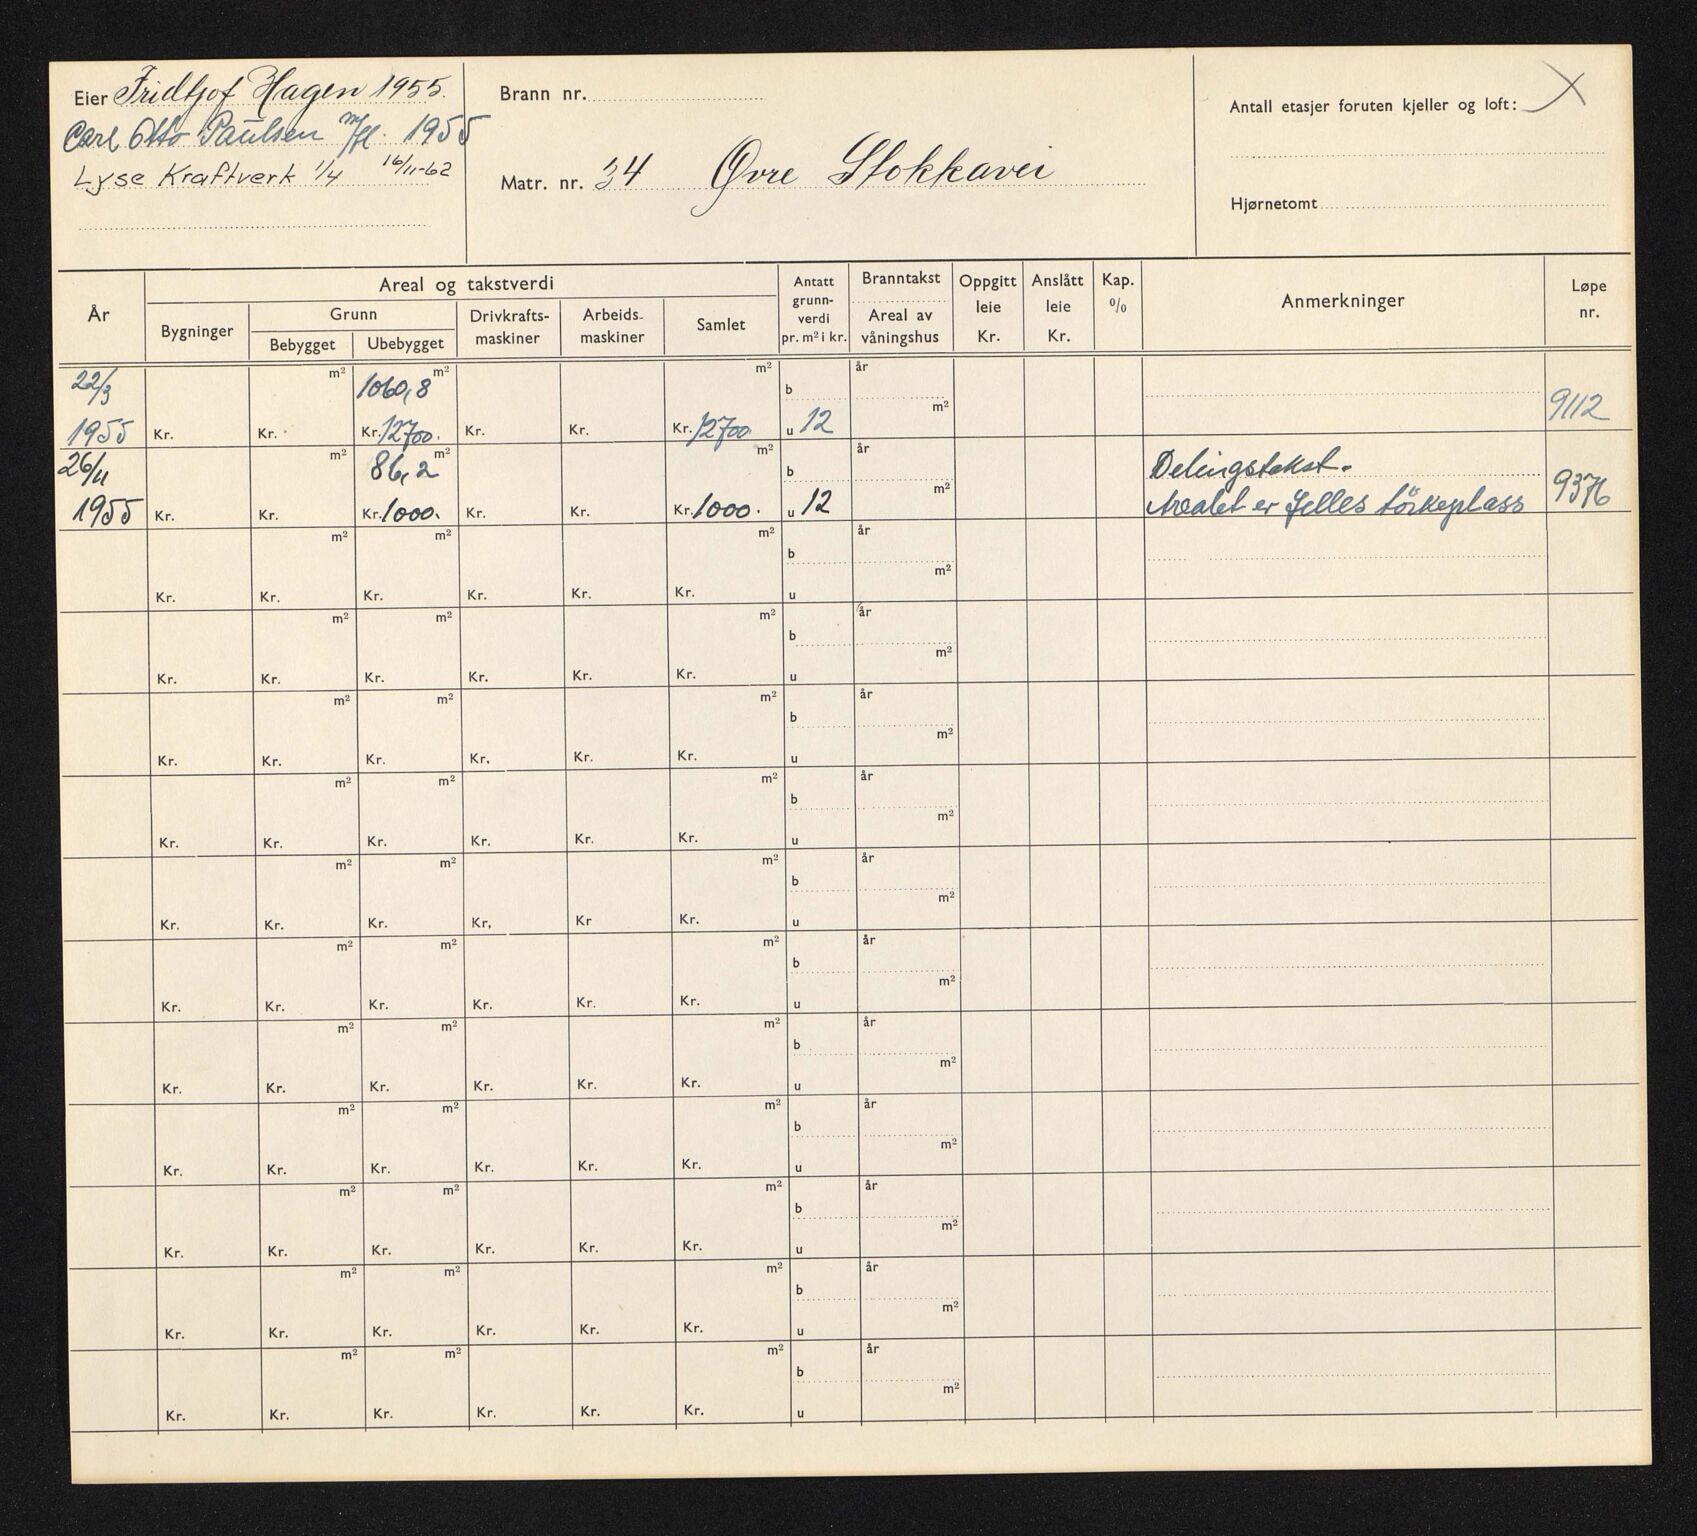 Eier Fridtjof Hagen 1955.
Carl Otto Paulsen m/fl. 1955
Lyse Kraftverk 1/4 16/11-62
Brann nr.
Matr. nr. 34 Øvre Stokkavei
Antall etasjer foruten kjeller og loft:
Hjørnetomt
År
Areal og takstverdi
Bygninger
Grunn
Bebygget Ubebygget
Drivkrafts-
maskiner
Arbeids-
maskiner
Samlet
Antatt
grunn-
verdi
pr. m² i kr.
Branntakst
Areal av
våningshus
Oppgitt
leie
Kr.
Anslått
leie
Kr.
Kap.
%
Anmerkninger
Løpe
nr.
22/3 m² 1060,8 m² m² b år
1955 Kr. Kr. Kr. 12700. Kr. Kr. Kr. 12700. u 12 m² 9112
26/11 m² 86,2 m² m² b år Delingstakst.
1955 Kr. Kr. Kr. 1000. Kr. Kr. Kr. 1000. u 12 m² Arealet er felles törkeplass 9376
m² m² m² b år
Kr. Kr. Kr. Kr. Kr. Kr. u m²
m² m² m² b år
Kr. Kr. Kr. Kr. Kr. Kr. u m²
m² m² m² b år
Kr. Kr. Kr. Kr. Kr. Kr. u m²
m² m² m² b år
Kr. Kr. Kr. Kr. Kr. Kr. u m²
m² m² m² b år
Kr. Kr. Kr. Kr. Kr Kr. u m²
m² m² m² b år
Kr. Kr. Kr. Kr. Kr. Kr. u m²
m² m² m² b år
Kr. Kr. Kr. Kr. Kr. Kr. u m²
m² m² m² b år
Kr. Kr. Kr. Kr. Kr. Kr. u m²
m² m² m² b år
Kr. Kr. Kr. Kr. Kr. Kr. u m²
m² m² m² b år
Kr. Kr. Kr. Kr. Kr. Kr. u m²
m² m² m² b år
Kr. Kr. Kr. Kr. Kr. Kr. u m²